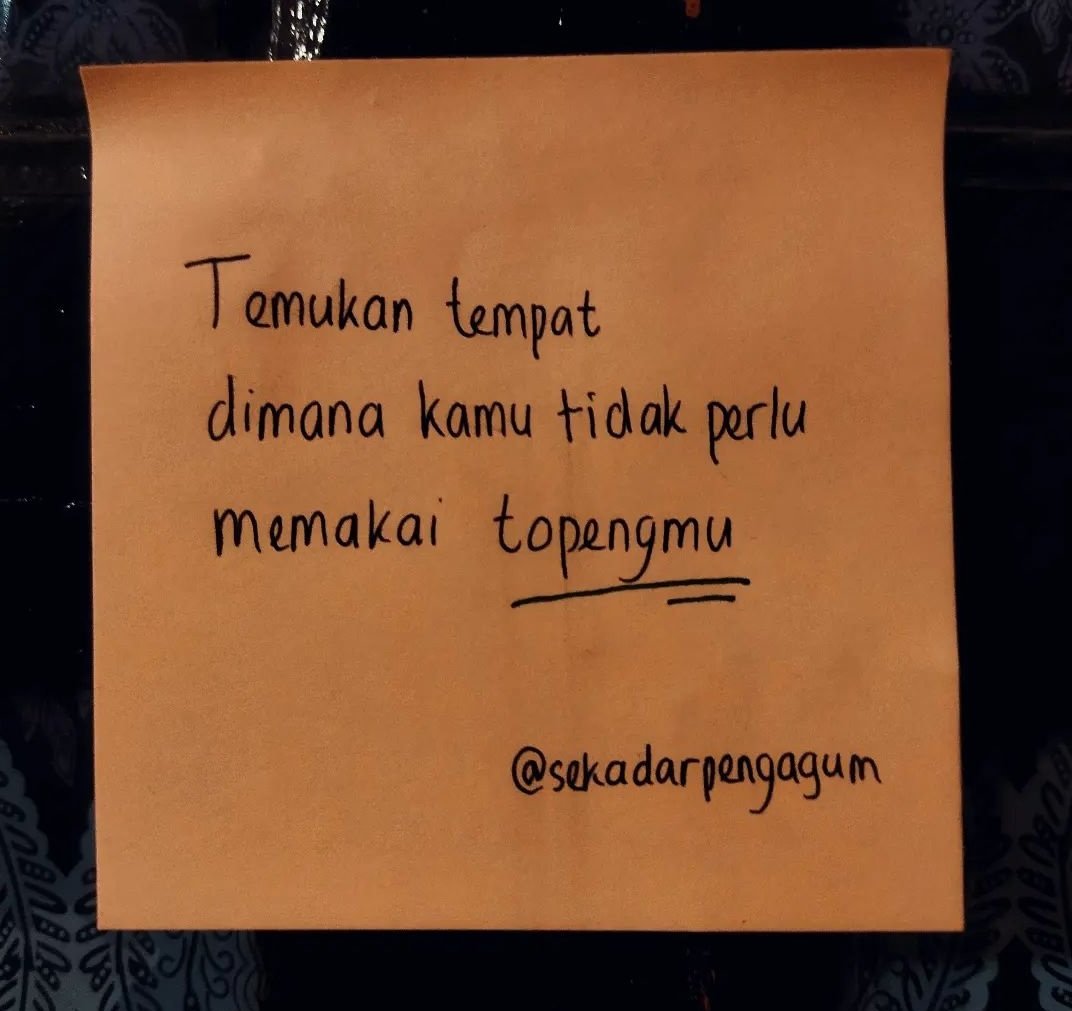 Temukan tempat
dimana kamu tidak perlu
memakai topengmu
@sekadarpengagum